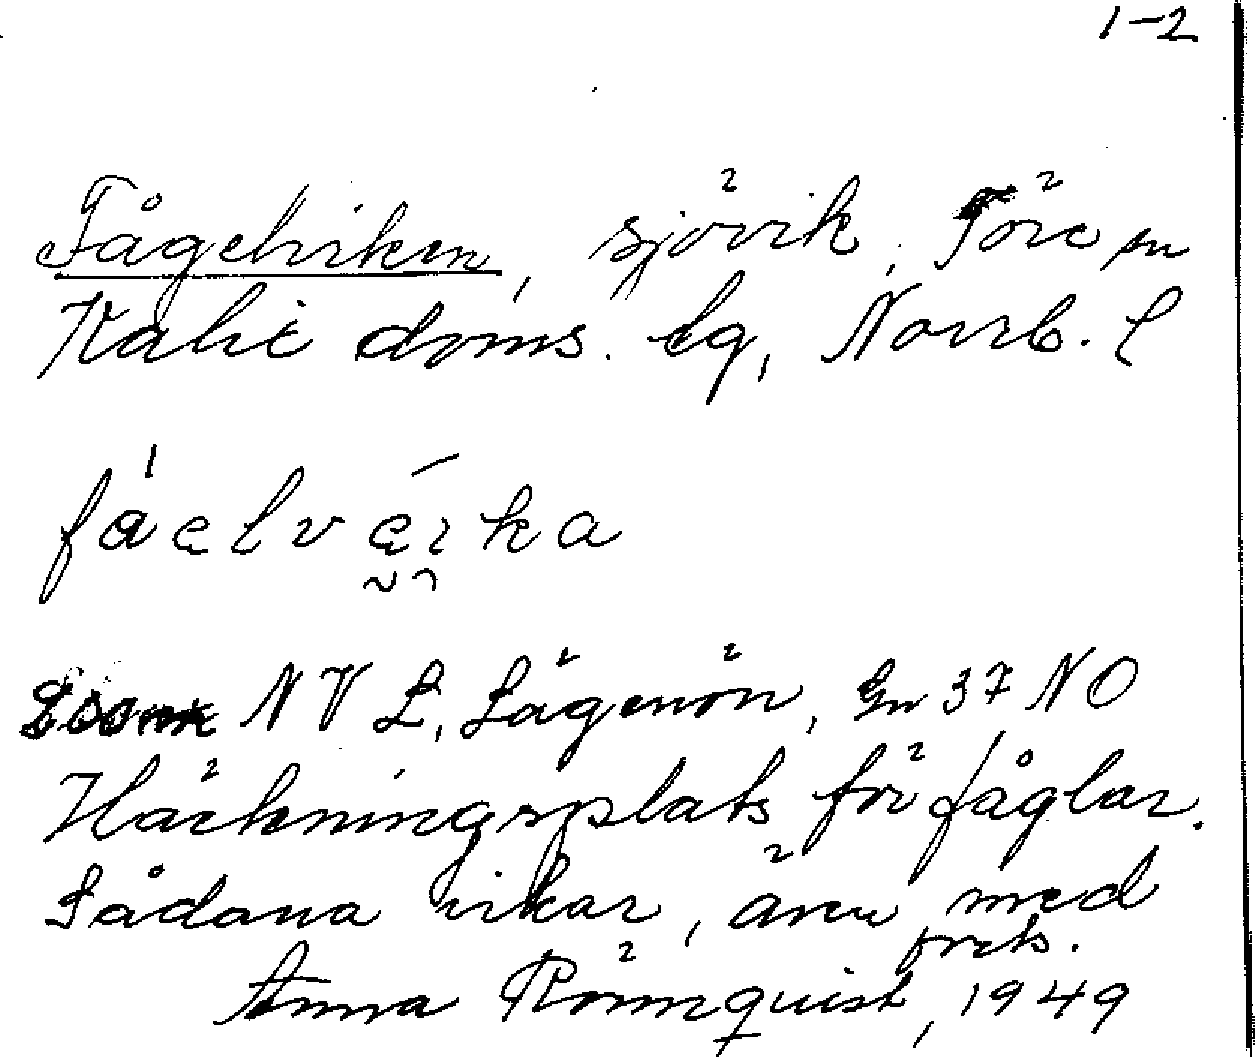 1-2
Fågelviken, sjövik, Töre sn
Kalix doms. lg, Norrb. l
fáelvęı̨ka
NV L. Lågenön, Gn 37 NO
Häckningsplats för fåglar.
Sådana vikar, även med
Anna Rönnquist, 1949